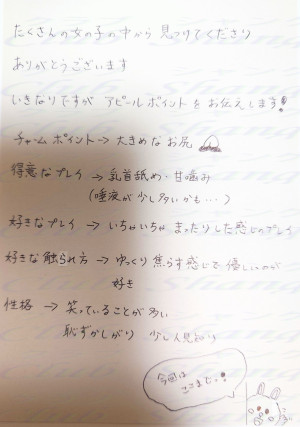 たくさんの女の子の中から見つけてくださり
ありがとうございます
いきなりですが アピールポイントをお伝えします!
チャームポイント→大きめなお尻
得意なプレイ → 乳首舐め・甘噛み
(唾液が少し多いかも…)
好きなプレイ → いちゃいちゃ まったりした感じのプレイ
好きな触られ方 → ゆっくり焦らす感じで、優しいのが
好き
性格 → 笑っていることが多い
恥ずかしがり 少し人見知り
今回は
ここまで!